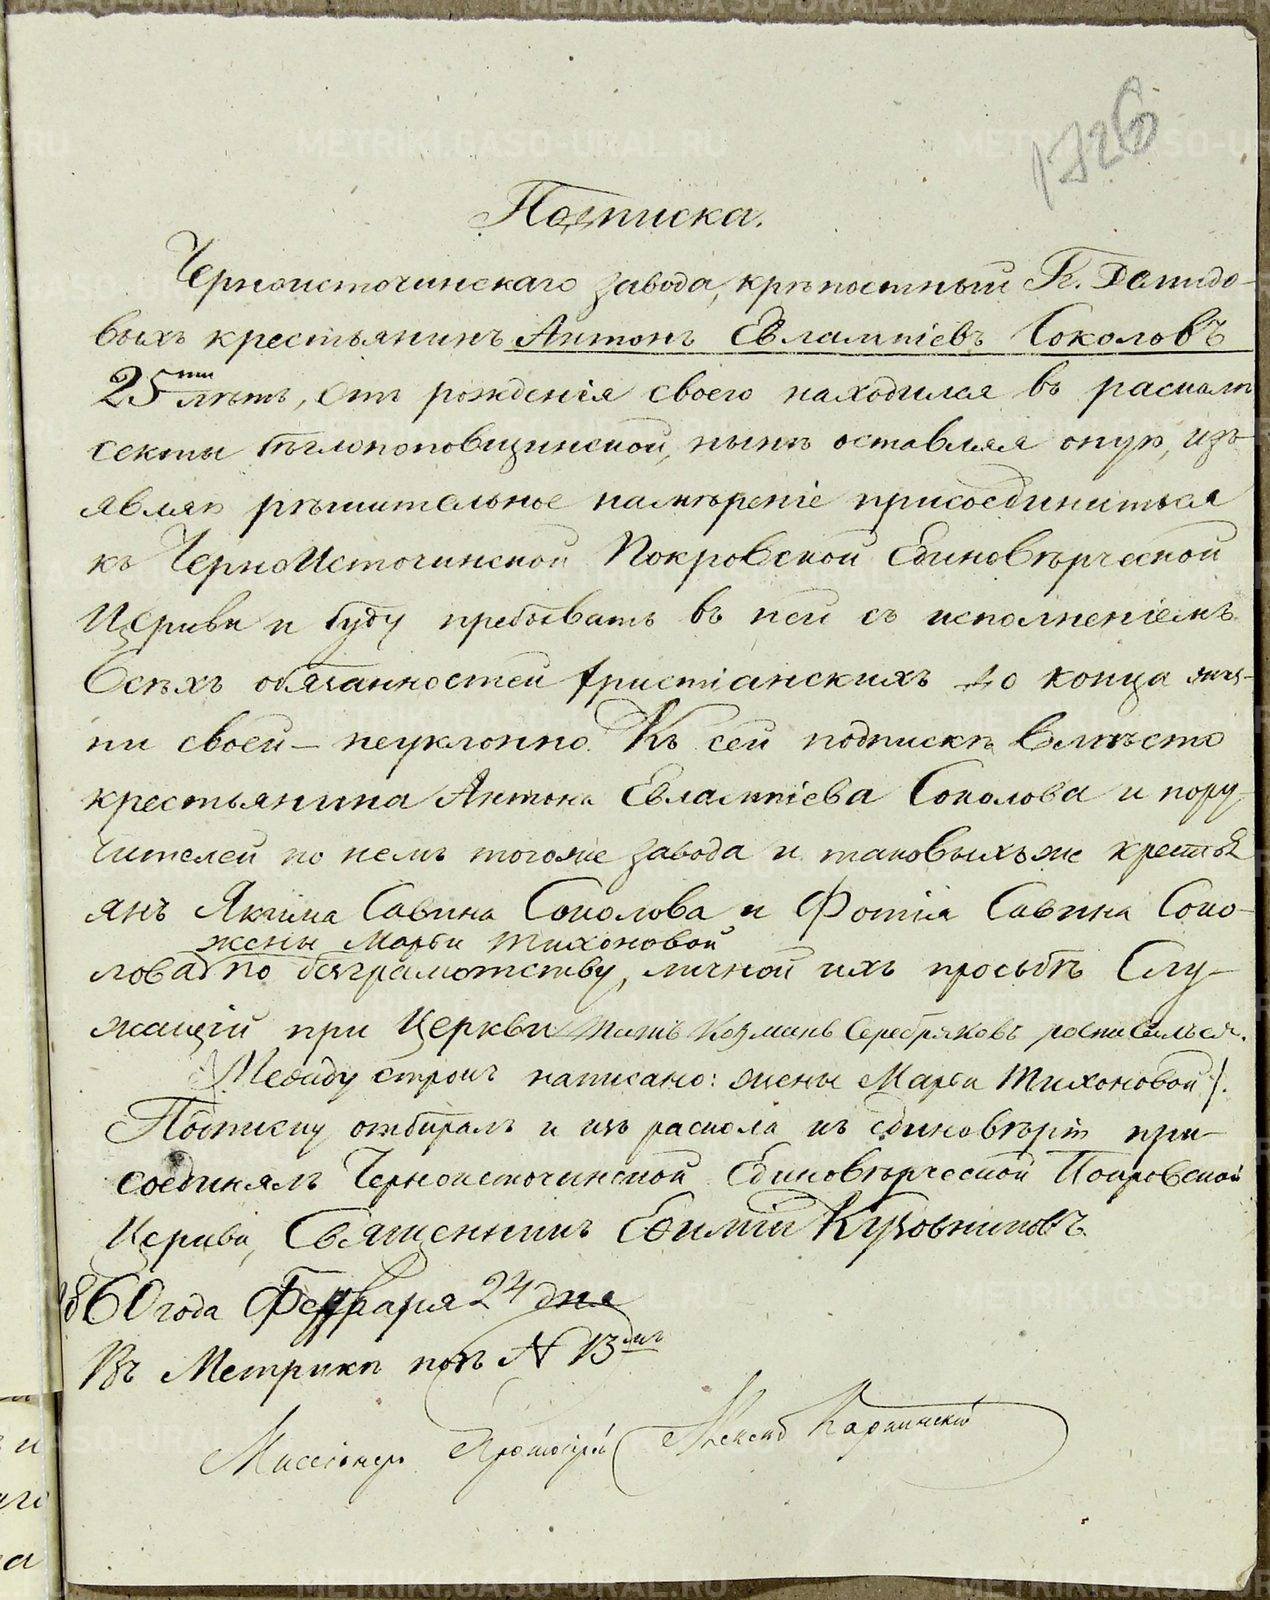 1726
Подписка.
Черноисточинскаго завода, крѣпостный Г. Демидо-
выхъ крестьянинъ Антонъ Евлампіевъ Соколовъ
25ти лѣтъ, отъ рожденія своего находился въ расколѣ
секты бѣглопоповщинской, нынѣ оставляя оную, изъ-
являю рѣшительное намѣреніе присоединиться
къ ЧерноИсточинской Покровской Единовѣрческой
Церкви и буду пребывать въ ней съ исполненіемъ
всѣхъ обязанностей христіанскихъ до конца жиз-
ни своей – неуклонно. Къ сей подпискѣ вмѣсто
крестьянина Антона Евлампіева Соколова и пору-
чителей по немъ тогоже завода и таковыхъже кресть
янъ Якима Савина Соколова и Фотія Савина Соко-
жены Марьи Тихоновой
лова по безграмотству, личной ихъ просьбѣ Слу-
жащій при Церкви Титъ Козминъ Серебряковъ росписался.
/Между строкъ написано: жены Марьи Тихоновой/.
Подписку отбиралъ и изъ раскола къ единовѣрію при-
соединялъ Черноисточинской Единовѣрческой Покровской
Церкви, Священникъ Евимій Кузовниковъ
1860 года Февраля 24 дня
Въ Метрикѣ подъ N 13мъ
Миссіонеръ Протоіерей Александ Карпинскій
METRIKI.GASO-URAL.RU